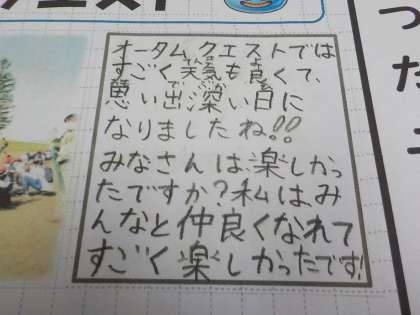 エスト
オータムクエストでは
すごく天気も良くて、
思い出深い日に
なりましたね!!
みなさんは、楽しかっ
たですか?私は、み
んなと仲良くなれて
すごく楽しかったです!
つ
た